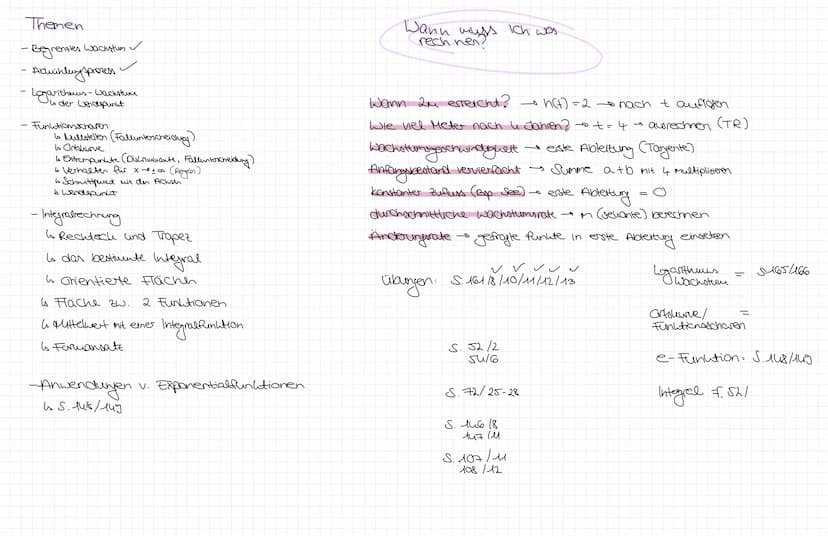 Themen
- Begrenztes Wachstum ✓
- Abkühlungsprozess ✓
- Logarithmus-Wachstum
↳ der Wendepunkt
- Funktionsscharen
↳ Nullstellen (Fallunterscheidung)
↳ Ortskurve
↳ Extrempunkte (Diskriminante, Fallunterscheidung)
↳ Verhalten für x → ±∞ (Regeln)
↳ Schnittpunkt mit den Achsen
↳ Wendepunkt
- Integralrechnung
↳ Rechteck und Trapez
↳ das bestimmte Integral
↳ orientierte Flächen
↳ Fläche zw. 2 Funktionen
↳ Mittelwert mit einer Integralfunktion
↳ Formansatz
- Anwendungen v. Exponentialfunktionen
↳ S. 148/149
Wann muss ich was
rechnen?
Wann 2m erreicht? → h(t) = 2 → nach t auflösen
Wie viel Meter nach 4 Jahren? → t = 4 → ausrechnen (TR)
Wachstumsgeschwindigkeit → erste Ableitung (Tangente)
Anfangsbestand vervierfacht → Summe a+b mit 4 multiplizieren
Konstanter Zufluss (Bsp. See) → erste Ableitung = 0
durchschnittliche Wachstumsrate → m (Sekante) berechnen
Änderungsrate → gefragte Punkte in erste Ableitung einsetzen
Übungen: S. 161/8/10/11/12/13
✓ ✓ ✓ ✓ ✓
S. 52/2
54/6
S. 72/25-28
S. 146/8
147/11
S. 107/11
108/12
Logarithmus = S. 165/166
Wachstum
Ortskurve/ =
Funktionsscharen
e-Funktion = S. 148/149
Integral S. 52/